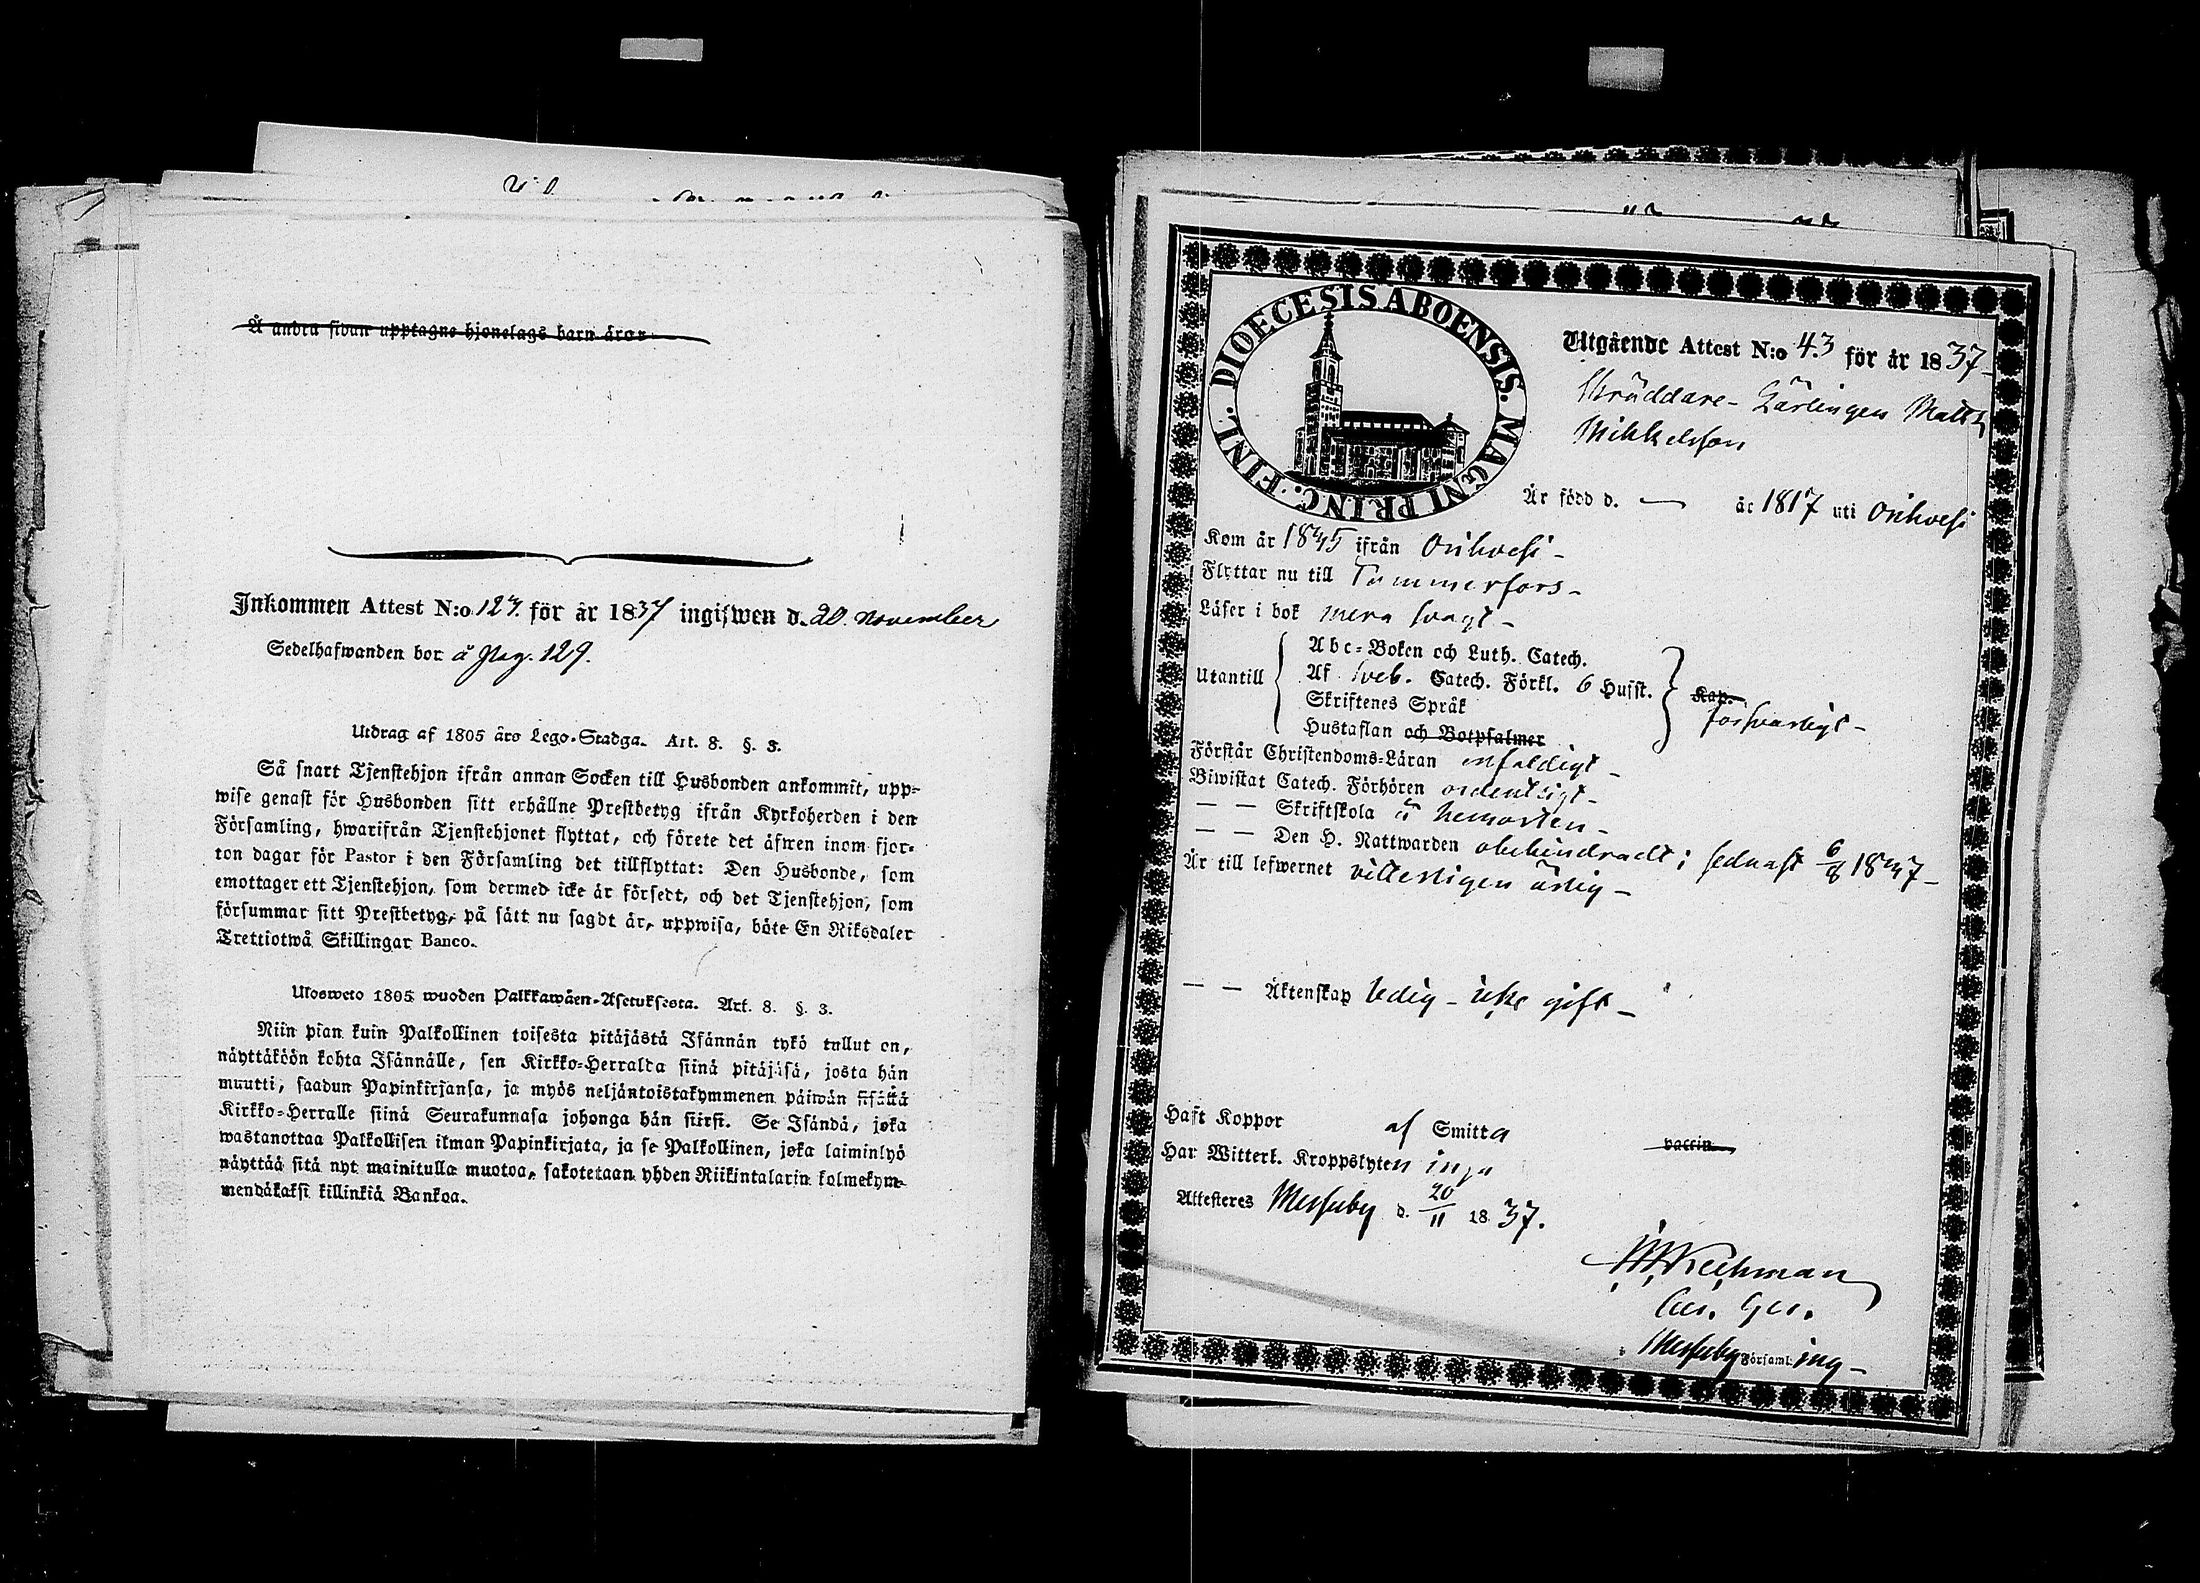 Å andra sidan upptagne hjonelags barn äro:
Inkommen Attest N:o 123. för år 1837 ingifwen d. 20. November
Sedelhafwanden bor å pag. 129.
Utdrag af 1805 års Lego-Stadga. Art. 8. §. 3.
Så snart Tjenstehjon ifrån annan Socken till Husbonden ankommit, upp-
wise genast för Husbonden sitt erhållne Prestbetyg ifrån Kyrkoherden i den
Församling, hwarifrån Tjenstehjonet flyttat, och förete det äfwen inom fjor-
ton dagar för Pastor i den Församling det tillflyttat: Den Husbonde, som
emottager ett Tjenstehjon, som dermed icke är försedt, och det Tjenstehjon, som
försummar sitt Prestbetyg, på sätt nu sagdt är, uppwisa, böte En Riksdaler
Trettiotwå Skillingar Banco.
Ulosweto 1805 wuoden Palkkawäen-Asetuksesta. Art. 8. §. 3.
Niin pian kuin Palkollinen toisesta pitäjästä Isännän tykö tullut on,
näyttäköön kohta Isännälle, sen Kirkko-Herralda siinä pitäjäsä, josta hän
muutti, saadun Papinkirjansa, ja myös neljäntoistakymmenen päiwän sisällä
Kirkko-Herralle siinä Seurakunnasa johonga hän siirsi. Se Isändä, joka
wastanottaa Palkollisen ilman Papinkirjata, ja se Palkollinen, joka laiminlyö
näyttää sitä nyt mainitulla muotoa, sakotetaan yhden Riikintalarin kolmekym-
mendäkaksi killinkiä Bankoa.
DIOECESIS ABOENSIS. MAGNI PRINC. FINL.
Utgående Attest N:o 43 för år 1837
Skräddare-Lärlingen Matts
Mikkelsson
Är född d. — år 1817 uti Orihvesi
Kom år 1835 ifrån Orihvesi
Flyttar nu till Tammerfors
Läser i bok mera svagt
Utantill
Abc-Boken och Luth. Catech.
Af Sveb. Catech. Förkl. 6 Hufst.
Skriftenes Språk
Hustaflan och Botpsalmer
Kap.
försvarligt
Förstår Christendoms-Läran enfaldigt
Biwistat Catech. Förhören ordentligt
— — Skriftskola å hemorten
— — Den H. Nattwarden obehindradt; sednast 6/8 1837
Är till lefwernet vitterligen ärlig
— — Äktenskap ledig - icke gift
Haft Koppor af Smitta vaccin.
Har Witterl. Kroppslyten inga
Attesteres Messuby d. 20/11 1837.
Messuby Församling